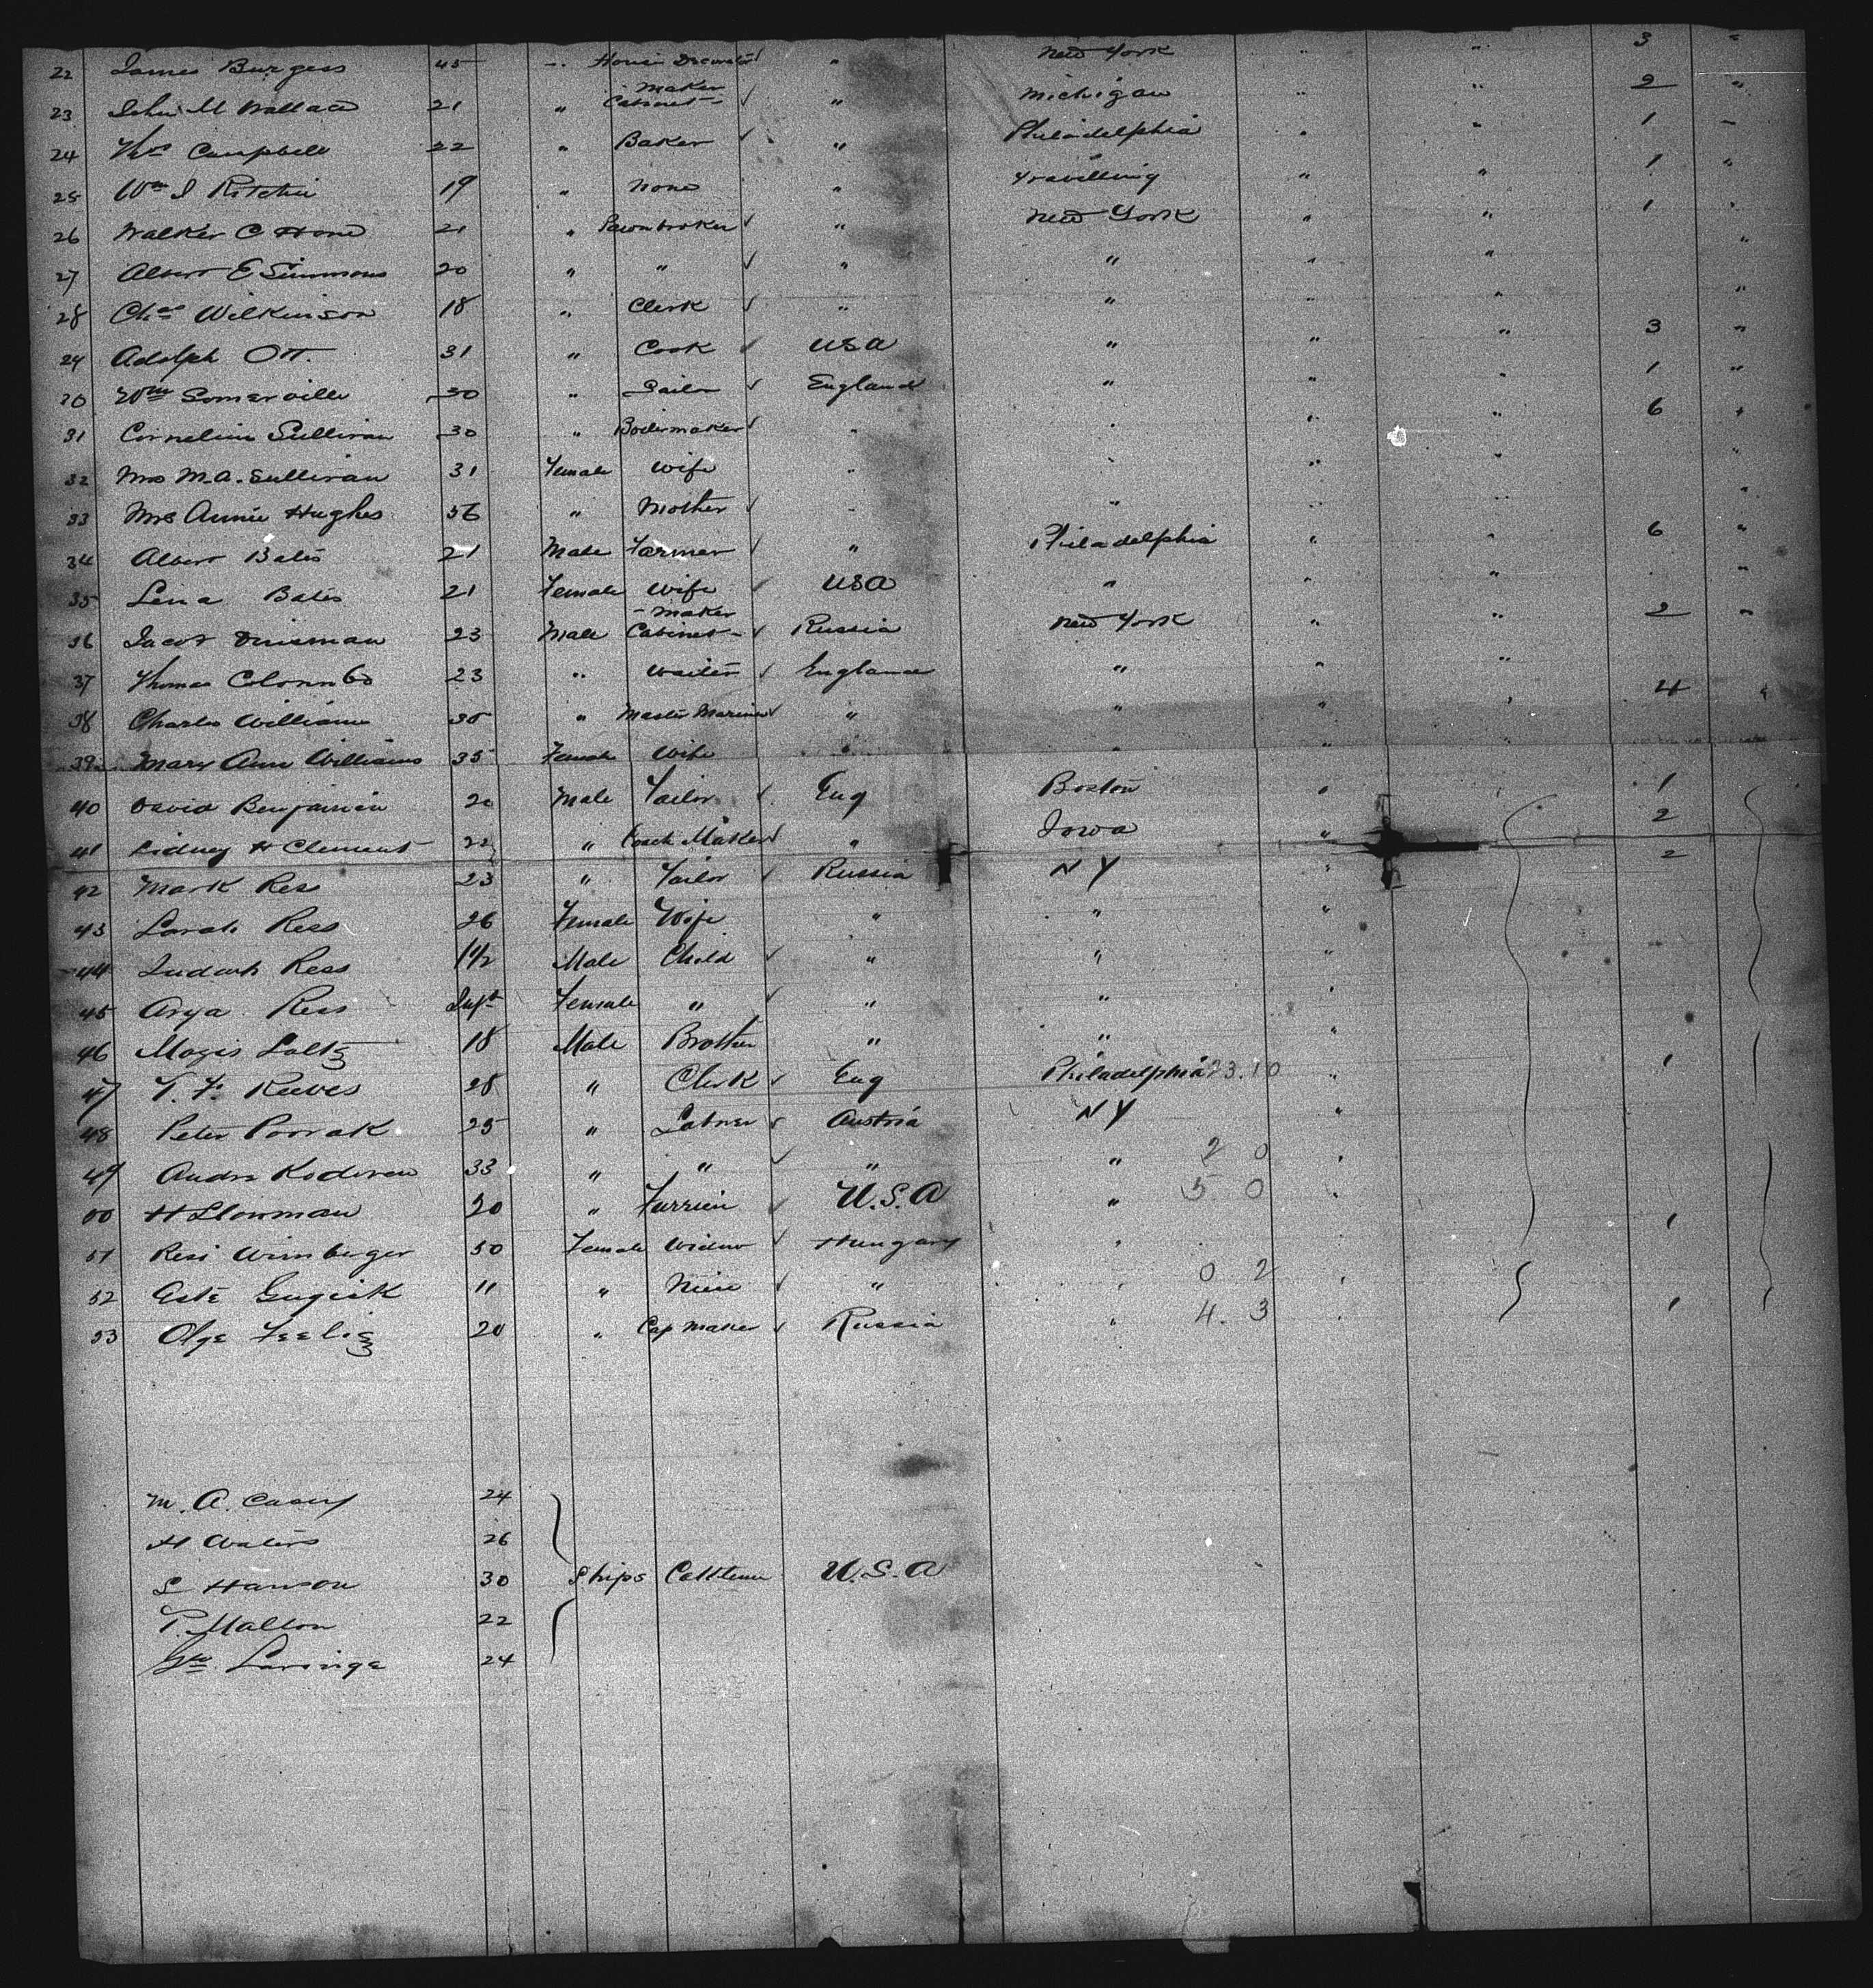 22 James Burgess 45 " House Decorator " New York " " 3 "
23 John M Wallace 21 " Cabinet-Maker " Michigan " " 2 "
24 Thos Campbell 22 " Baker " Philadelphia " " 1 "
25 Wm J Ritchie 19 " None " Travelling " " 1 "
26 Walker C Hone 21 " Pawnbroker " New York " " 1 "
27 Albert E Simmons 20 " " " " " " "
28 Chas Wilkinson 18 " Clerk " " " " "
29 Adolph Ott. 31 " Cook USA " " " 3 "
30 Wm Somerville 30 " England " " " 1 "
31 Cornelius Sullivan 30 " Boilermaker " " " " 6 "
32 Mrs M.A. Sullivan 31 Female Wife " " " " "
33 Mrs Annie Hughes 56 " Mother " " " " "
34 Albert Bates 21 Male Farmer " Philadelphia " " 6 "
35 Lena Bates 21 Female Wife USA " " " "
36 Jacob 23 Male Cabinet-Maker Russia New York " " 2 "
37 Thomas Colombo 23 " Waiter England " " "
38 Charles Williams 35 " Master Mariner " " " " 4 "
39 Mary Ann Williams 35 Female Wife " " " "
40 David Benjamin 20 Male Tailor Eng Boston " 1
41 Sidney H Clement 22 " Coach Maker " Iowa " 2
42 Mark Ress 23 " Tailor Russia N Y " 2
43 Sarah Ress 26 Female Wife " " "
44 Ress 1½ Male Child " " "
45 Ress Inft Female " " " "
46 18 Male Brother " " "
47 T. F. Reeves 28 " Clerk Eng Philadelphia 23.10 " 1
48 Peter 25 " Labner Austria N Y "
49 33 " " " " 2 0 "
50 H 20 " Furrier U.S.A " 5 0 "
51 Resi Wimberger 50 Female Widow Hungary " " 1
52 11 " Niece " " 0 2 "
53 Olga 20 " Cap Maker Russia " 4. 3 " 1
M. A. Casey 24
H Waters 26
S Hanson 30 Ships Cattlemen U.S.A
T. Mallon 22
24